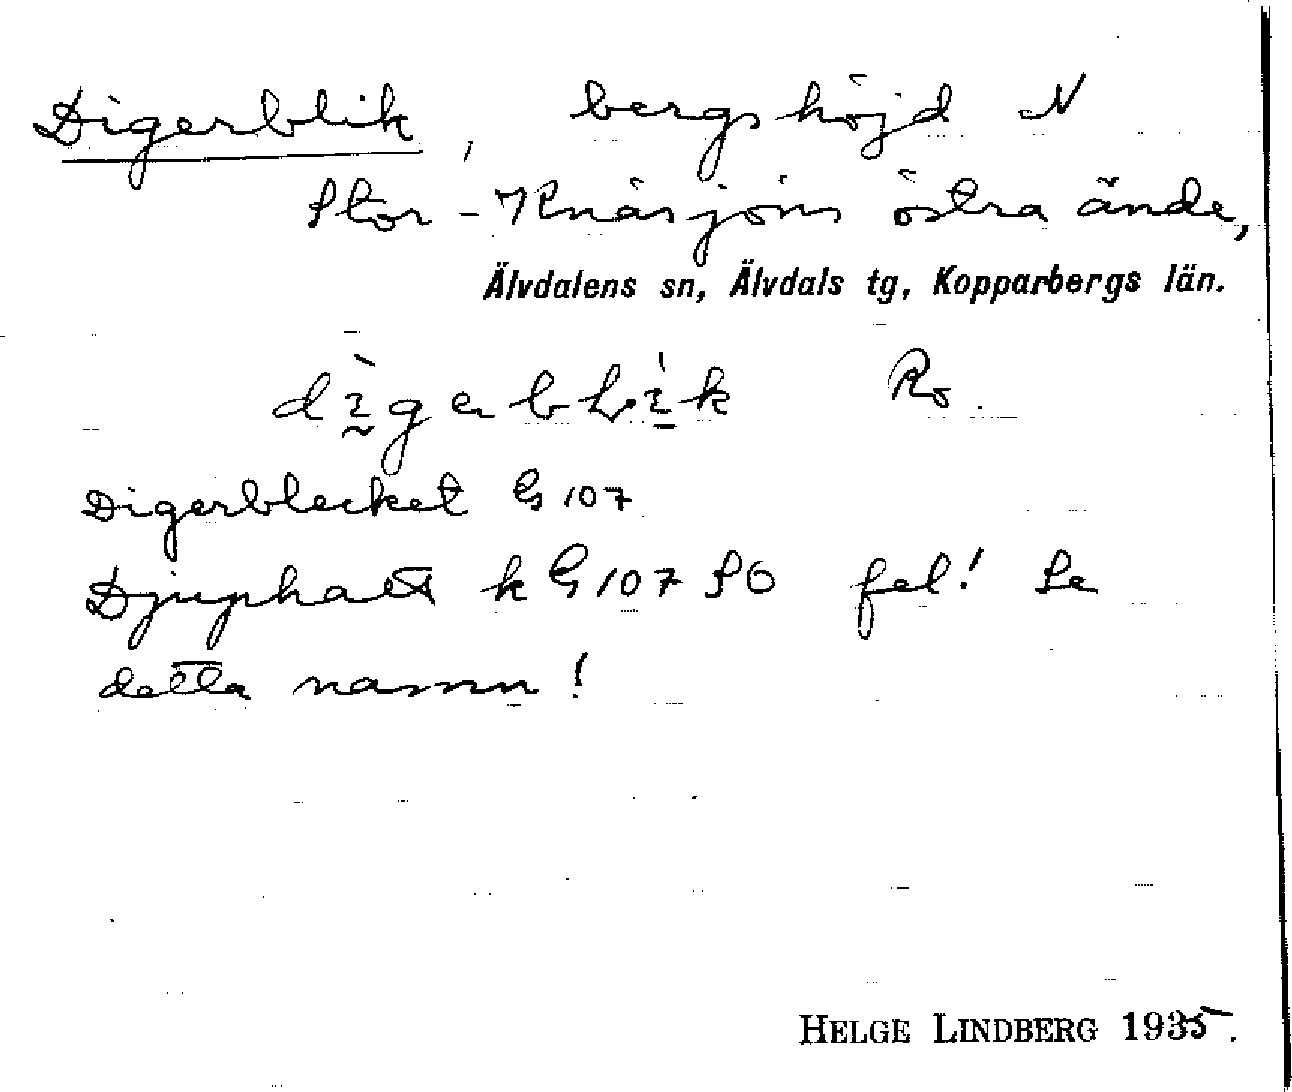 Digerblik, bergshöjd N
Stor-Knåsjöns östra ände,
Älvdalens sn, Älvdals tg, Kopparbergs län.
dìgerblik Ro.
Digerblecket G 107
Djuphatt k G 107 SO fel! Se
detta namn!
HELGE LINDBERG 1935.